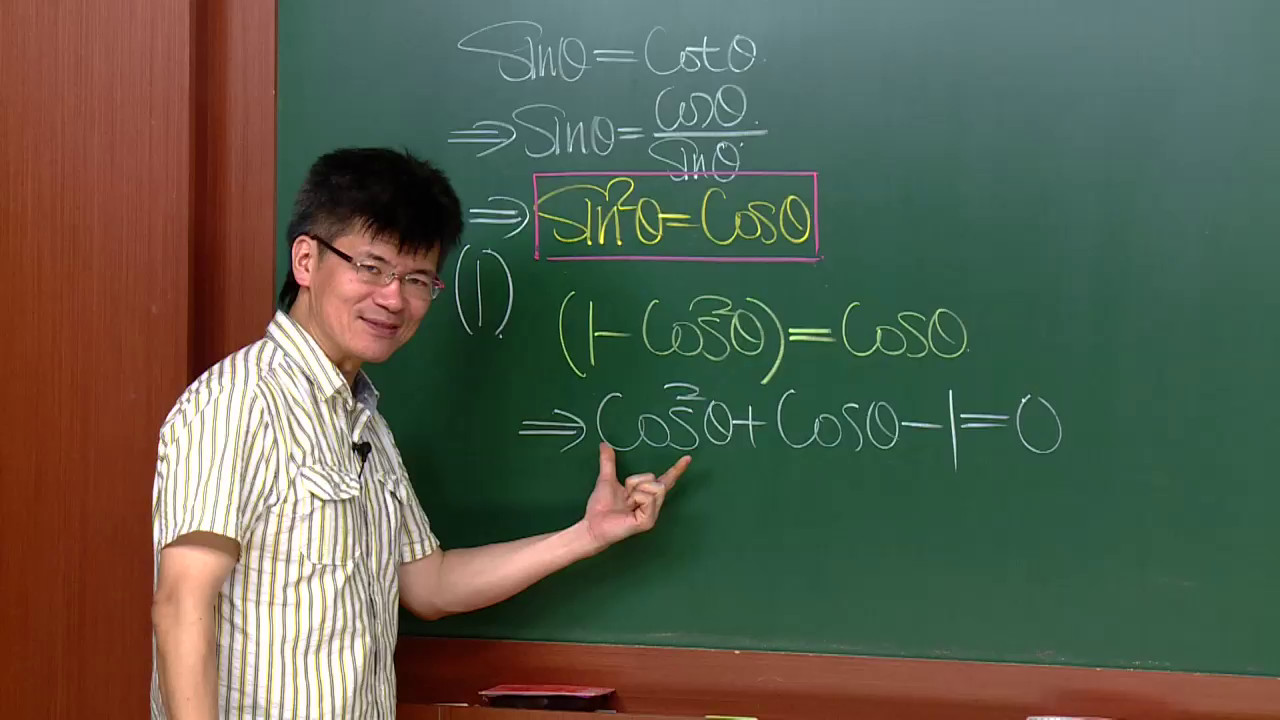 Sinθ = Cotθ
⇒ Sinθ = Cosθ / Sinθ
⇒ Sin²θ = Cosθ
(1)
(1 - Cos²θ) = Cosθ
⇒ Cos²θ + Cosθ - 1 = 0